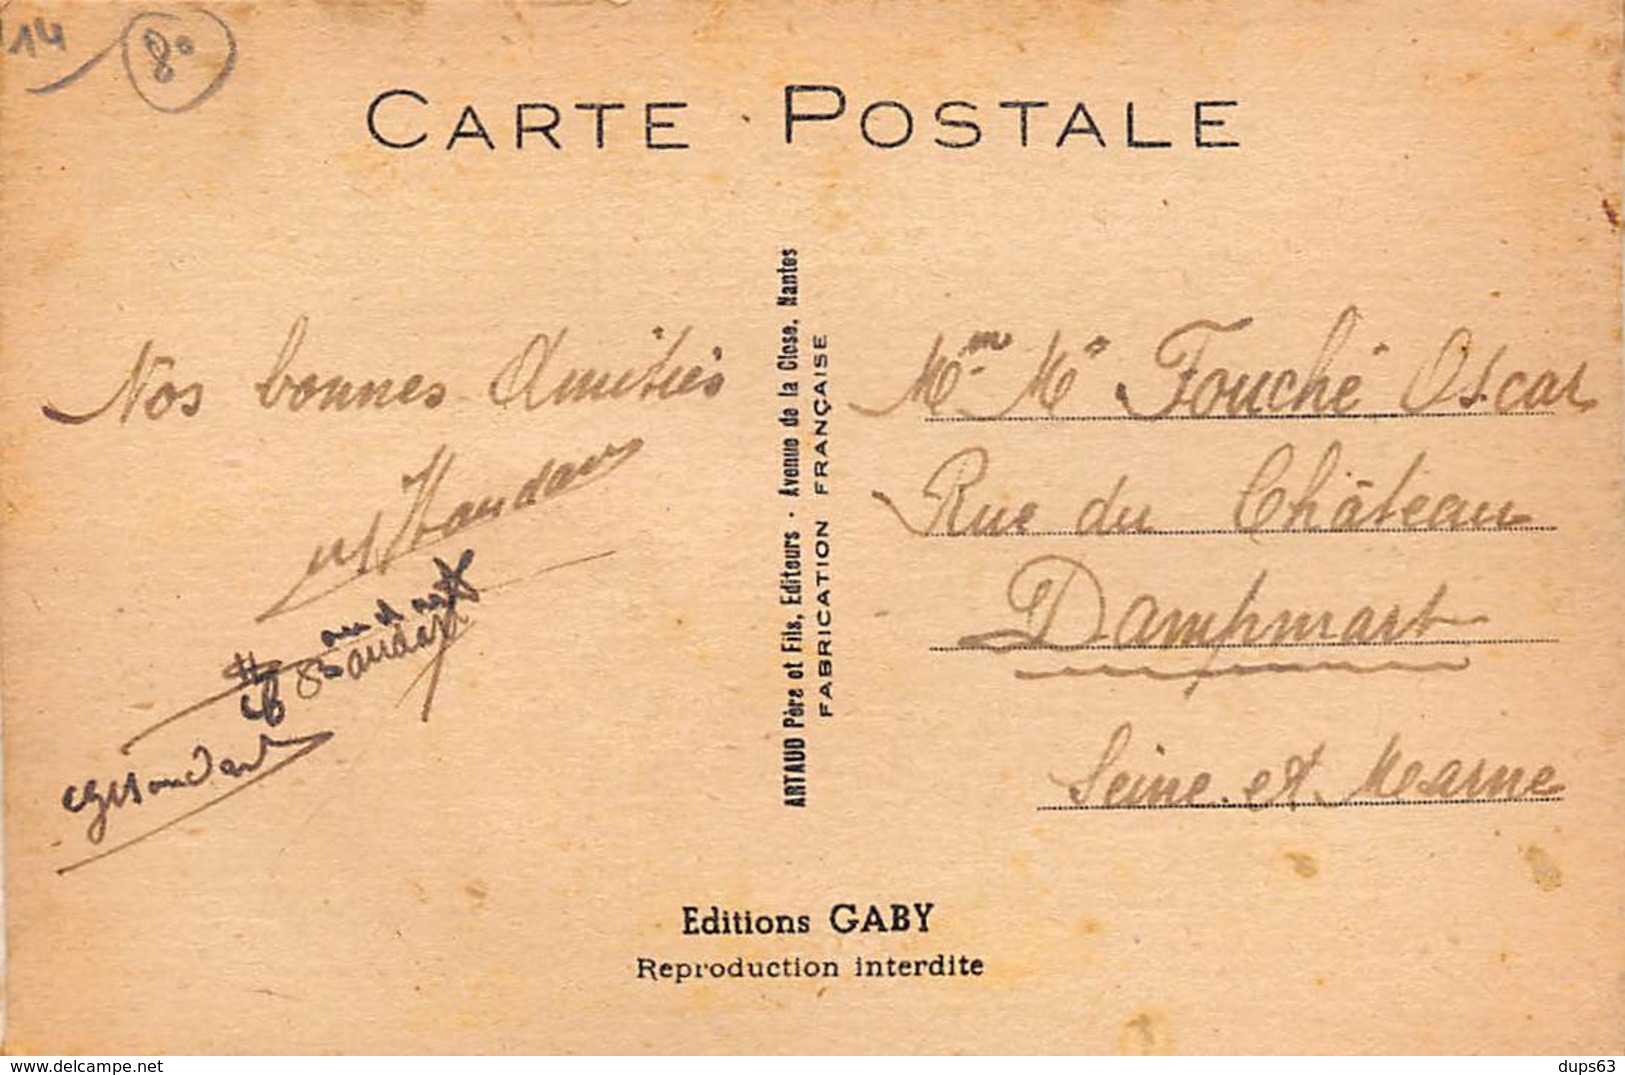 14 80
CARTE POSTALE
Nos bonnes Amitiés
ARTAUD Père et Fils, Editeurs - Avenue de la Close, Nantes
FABRICATION FRANÇAISE
Mme Mr Fouché Oscar
Rue du Château
Dampmart
Seine et Marne
Editions GABY
Reproduction interdite
www.delcampe.net
dups63